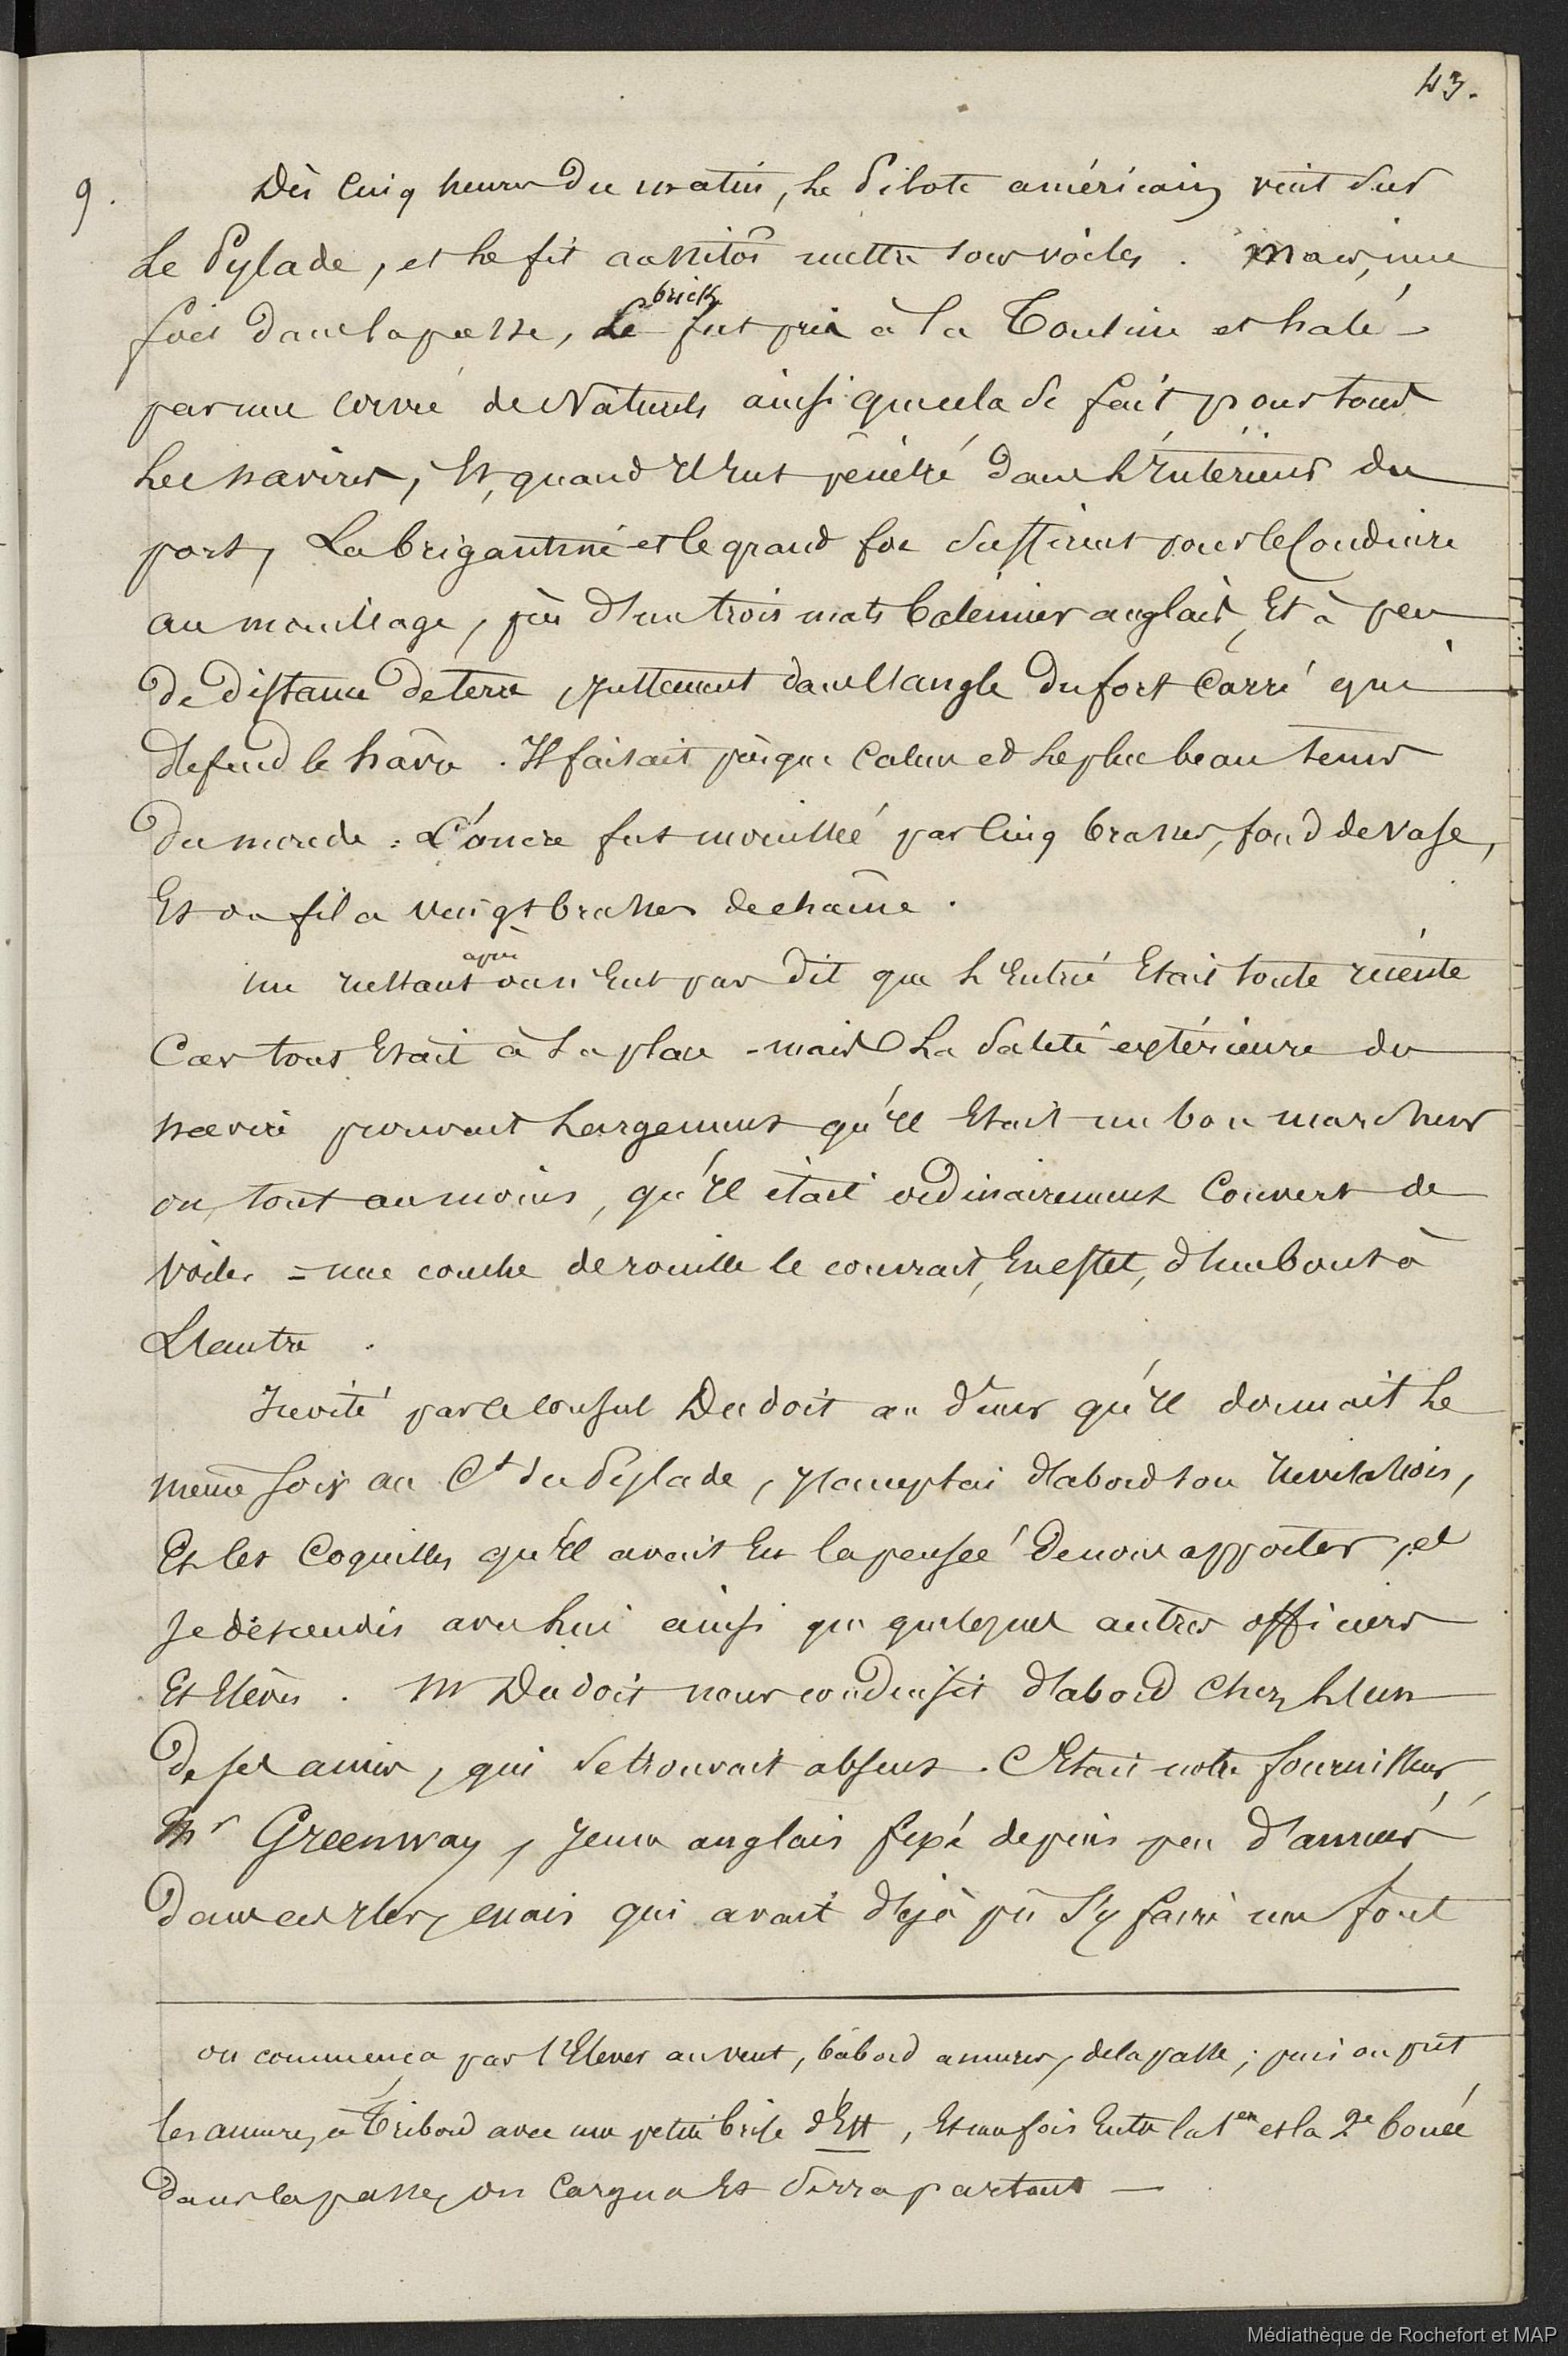 43.
9.
Dès Cinq heures du matin, le Pilote américain vint sur
Le Pylade, et le fit aussitôt mettre sous voiles. Mais, une
fois dans la passe, le brick fut pris à la Touline et halé
par une corvée de Naturels ainsi que cela se fait pour tous
Les navires, Et, quand Il Eut pénétré dans l'Intérieur du
port, La brigantine et le grand foc suffirent pour le Conduire
au mouillage, près d'un trois mats baleinier anglais, Et à peu
de distance de terre, justement dans l'angle du fort Carré qui
défend le hâvre. Il faisait presque Calme et le plus beau tems
du monde = L'ancre fut mouillée par Cinq brasses, fond de vase,
Et on fila vingt brasses de chaîne.
un Instant après on n'Eut pas dit que l'Entrée Etait toute récente
Car tout Etait à sa place - mais La saleté extérieure du
navire prouvait Largement qu'Il Etait un bon marcheur
ou, tout au moins, qu'Il était ordinairement Couvert de
voiles = une couche de rouille le couvrait, En effet, d'un bout à
L'autre.
Invité par le Consul Dudoit au dîner qu'Il donnait le
même soir au Ct du Pylade, J'acceptai d'abord son Invitation,
Et les Coquilles qu'Il avait Eu la pensée de nous apporter, et
Je descendis avec lui ainsi que quelques autres officiers
Et Elèves. Mr Dudoit nous conduisit d'abord chez l'un
de ses amis, qui se trouvait absent. C'Etait notre fournisseur,
Mr Greenway, Jeune anglais fixé depuis peu d'années
dans ces Iles, mais qui avait déjà pû s'y faire un fond
on commença par l'Elever au vent, bâbord amures, de la passe; puis on prit
les amures à Tribord avec une petite brise d'Est, Et une fois Entre la 1ere et la 2e bouée
dans la passe, on Cargua Et serra partout —
Médiathèque de Rochefort et MAP